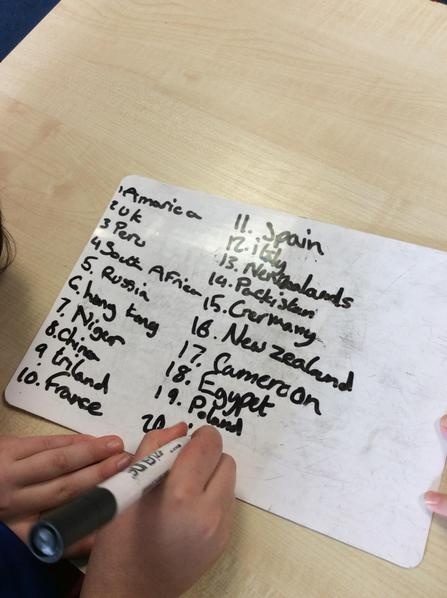 1 Amarica
2 UK
3 Peru
4 South Africa
5. Russia
6. hong kong
7. Niger
8. China
9 Irland
10. France
11. Spain
12. itly
13. Nethealands
14. Packistan
15. Germany
16. New zealand
17. Cameroon
18. Egypet
19. Poland
20.